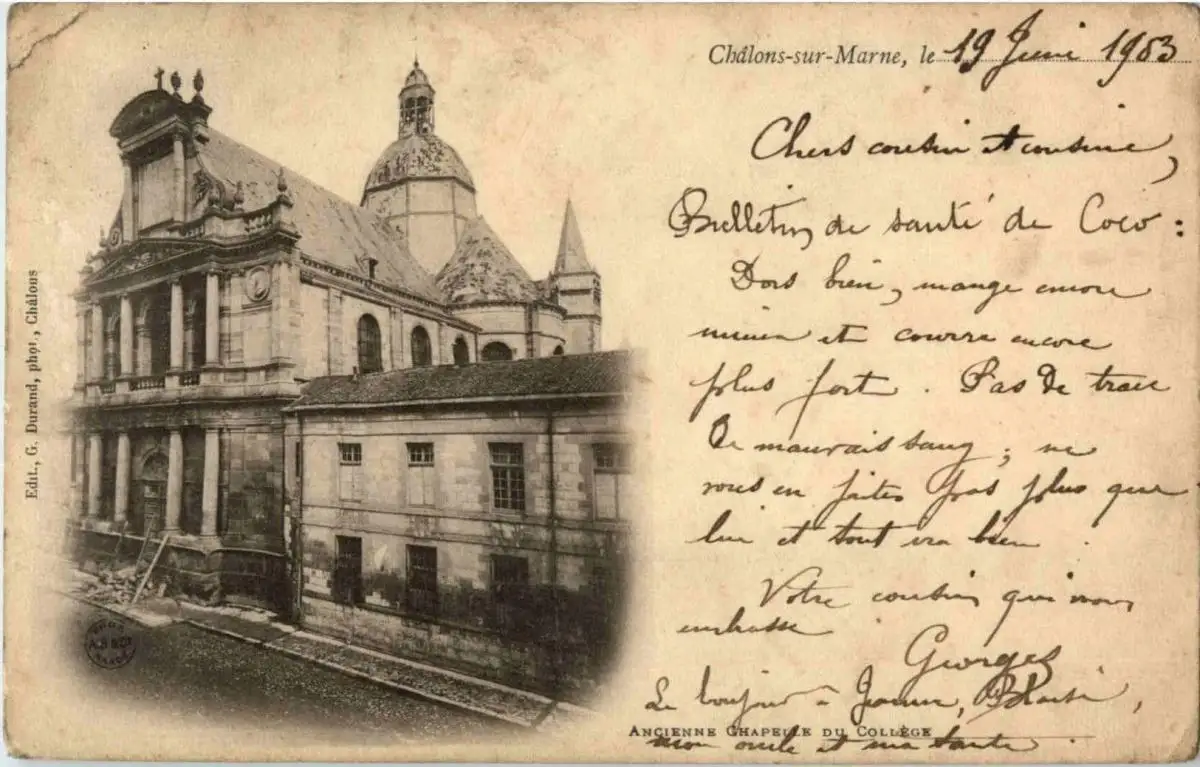 Châlons-sur-Marne, le 19 Juin 1903
Chers cousin et cousine,
Bulletin de santé de Coco :
Dors bien, mange encore
mieux et courre encore
plus fort. Pas de trace
de mauvais sang ; ne
vous en faites pas plus que
lui et tout ira bien
Votre cousin qui vous
embrasse
Georges
Le bonjour à Jeanne,
ANCIENNE CHAPELLE DU COLLÈGE
mon oncle et ma tante
Edit., G. Durand, phot., Châlons